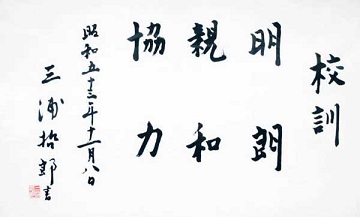 校訓
明朗
親和
協力
昭和五十三年十一月八日
三浦哲郎書